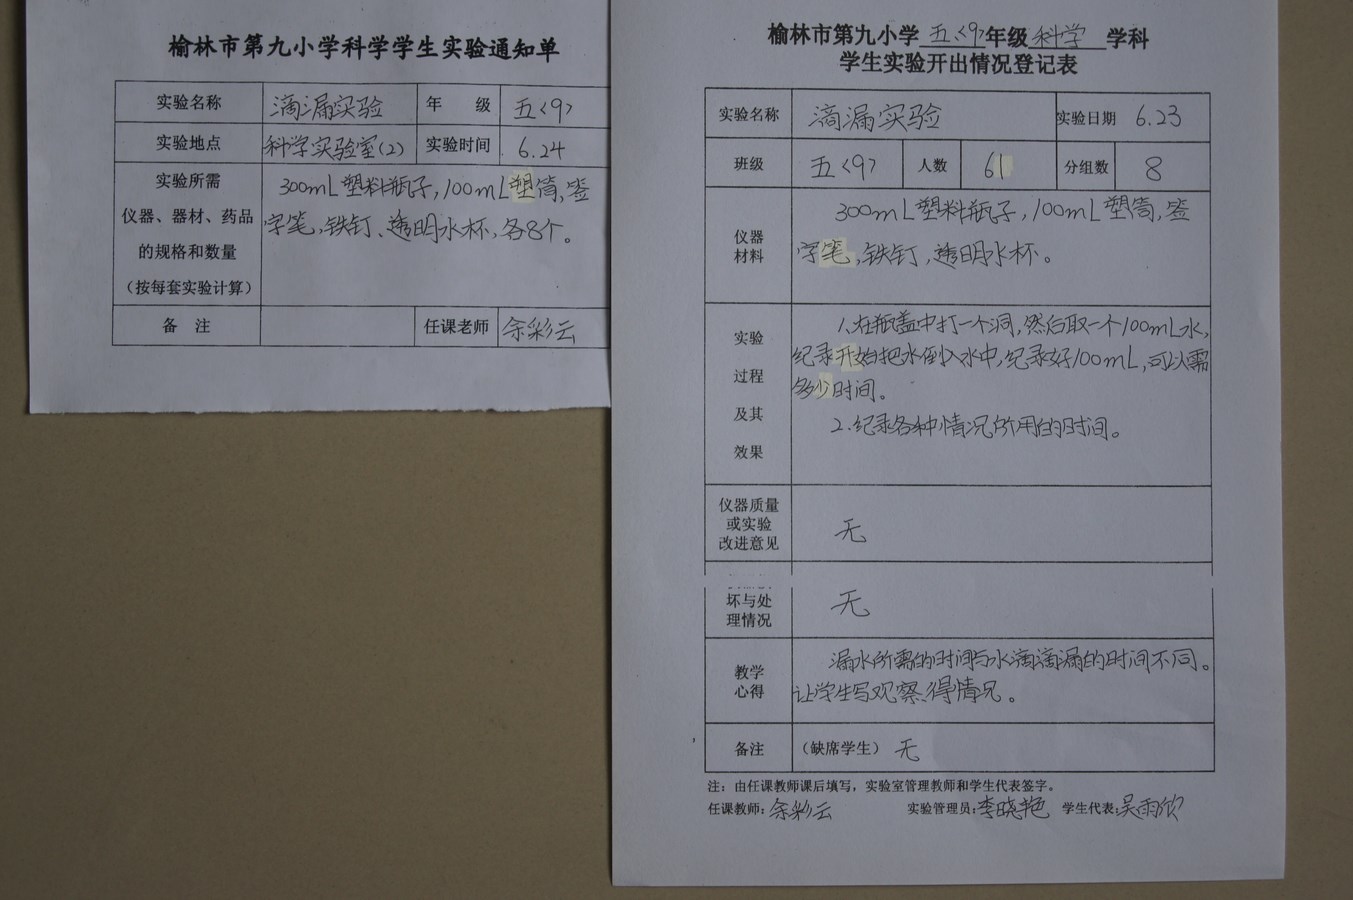 榆林市第九小学科学学生实验通知单
实验名称 滴漏实验 年 级 五〈9〉
实验地点 科学实验室(2) 实验时间 6.24
实验所需
仪器、器材、药品
的规格和数量
(按每套实验计算)
300mL塑料瓶子,100mL塑筒,签
字笔,铁钉、透明水杯,各8个。
备 注 任课老师 余彩云
榆林市第九小学 五〈9〉年级 科学 学科
学生实验开出情况登记表
实验名称 滴漏实验 实验日期 6.23
班级 五〈9〉 人数 61 分组数 8
仪器
材料
300mL塑料瓶子,100mL塑筒,签
字笔,铁钉,透明水杯。
实验
过程
及其
效果
1.在瓶盖中打一个洞,然后取一个100mL水,
纪录开始把水倒入水中,纪录好100mL,可以需
多少时间。
2.纪录各种情况所用的时间。
仪器质量
或实验
改进意见
无
坏与处
理情况
无
教学
心得
漏水所需的时间与水滴滴漏的时间不同。
让学生写观察得情况。
备注 (缺席学生) 无
注:由任课教师课后填写,实验室管理教师和学生代表签字。
任课教师:余彩云 实验管理员:李晓艳 学生代表:吴雨欣